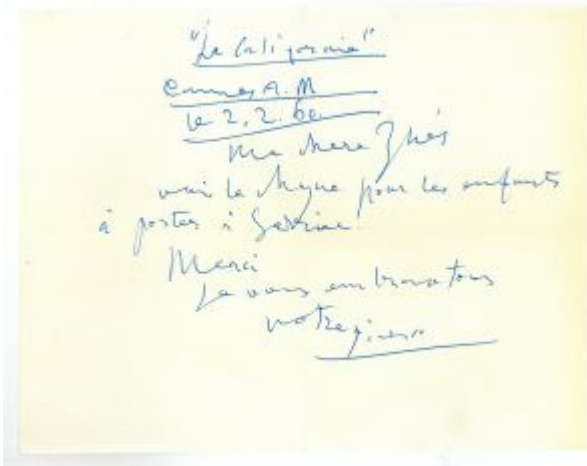 "La Californie"
Cannes A.M
le 2.2.60
Ma chere Inés
voici le cheque pour les enfants
à porter à
Merci
Je vous embrasse tous
votre Picasso